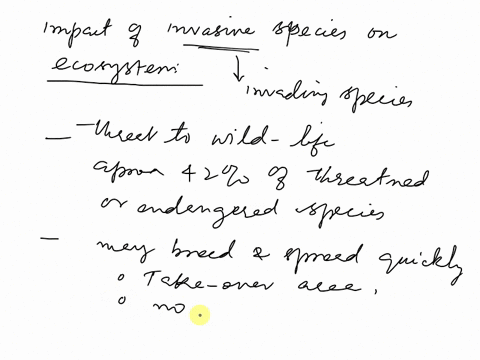 impact of invasine species on
ecosystem:
invading species
— threet to wild-life
aprox 42% of threatned
or endengered species
— may breed & spread quickly
◦ Take-over area.
◦ no